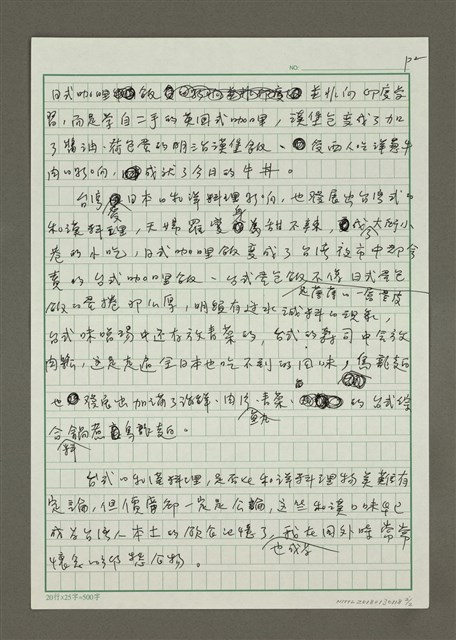 NO.
P2
日式咖哩飯 並非向印度學
習，而是學自二手的英國式咖哩，漢堡包變成了加
了醬油、荷包蛋的明治漢堡飯、受西人吃洋蔥牛
肉的影響，成就了今日的牛丼。
台灣受日本的和洋料理影響，也發展出台灣式的
和漢料理，天婦羅變身為甜不辣，成大街小
巷的小吃，日式咖哩飯變成了台灣夜市中都會
賣的台式咖哩飯、台式蛋包飯不像日式蛋包
飯的蛋捲那麼厚，明顯有
是薄薄的一層蛋皮
台式味噌湯中還有放青菜的，台式的壽司中會放
肉鬆，這是走遍全日本也吃不到的
也發展出加滿了海鮮、肉片、青菜、魚丸的台式綜
合料鍋煮烏龍麵。
台式的和漢料理，是否比和洋料理物美難有
定論，但價廉卻一定是公論，這些和漢口味早已
成為台灣人本土的飲食記憶了，我在國外時常常
也成為
懷念的鄉愁食物。
20行×25字=500字